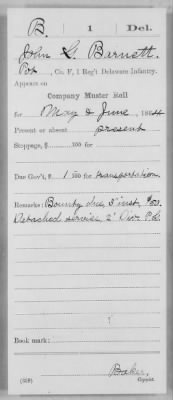 B. 1 Del.
John G. Barnett.
Pvt, Co. F, 1 Reg't Delaware Infantry.
Appears on
Company Muster Roll
for May & June, 1864
Present or absent present
Stoppage, $ 100 for
Due Gov't, $ 1 100 for transportation
Remarks: Bounty due, 3" inst. $50.
Detached service, 2" Div. P.G.
Book mark:
Baker.
(358) Copyist.